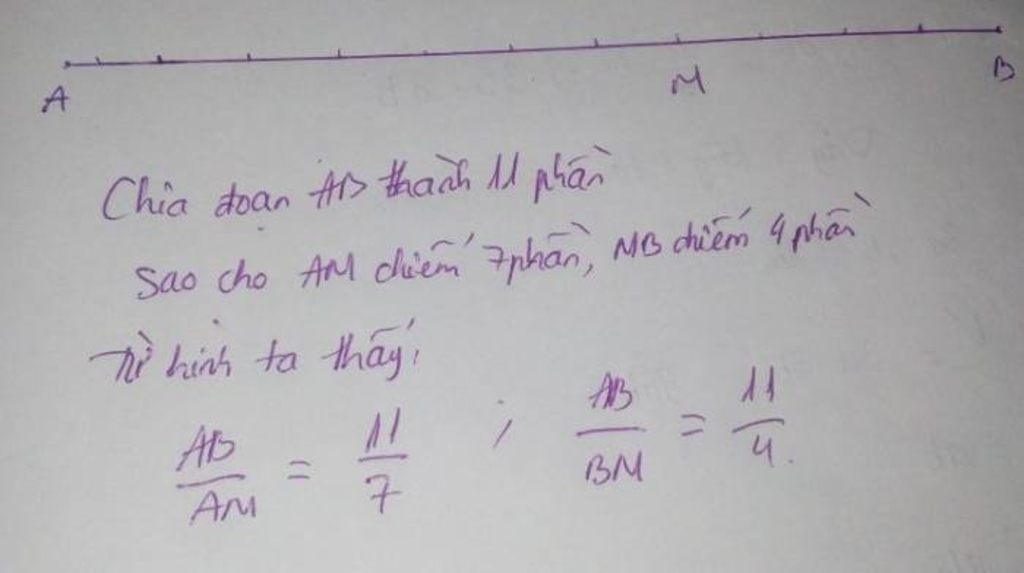 A M B
Chia đoạn AB thành 11 phần
Sao cho AM chiếm 7 phần, MB chiếm 4 phần
Từ hình ta thấy:
AB/AM = 11/7 ; AB/BM = 11/4.